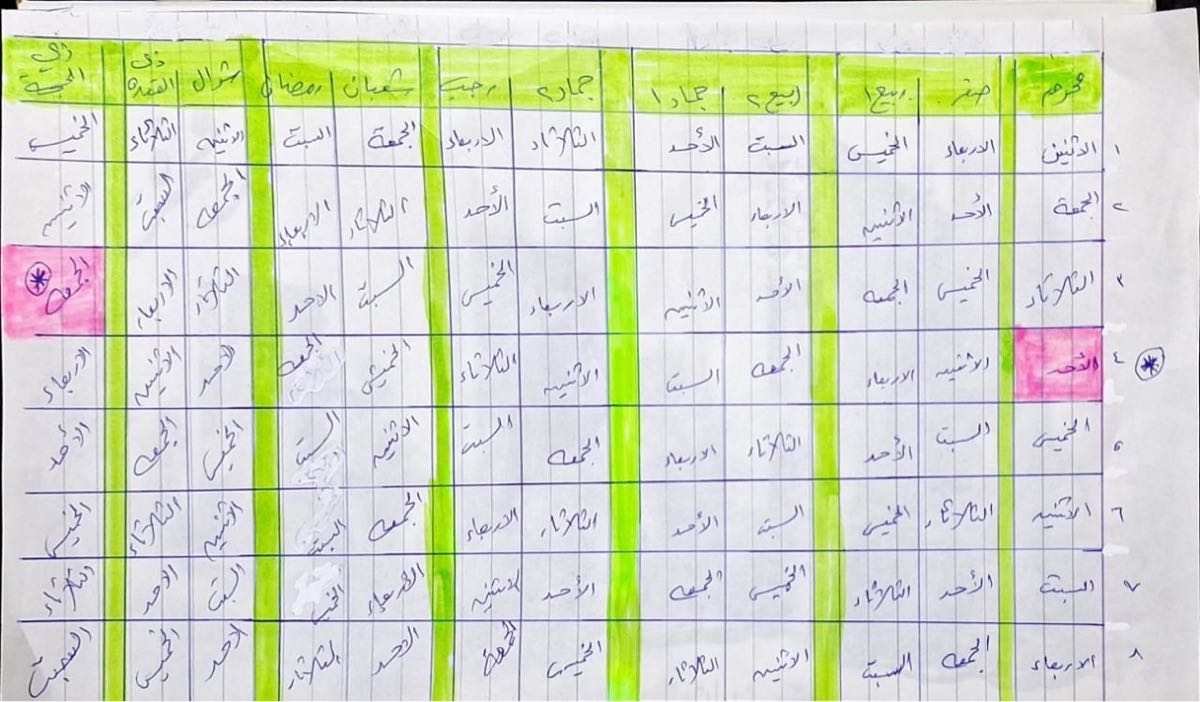 محرم صفر ربيع١ ربيع٢ جماد١ جماد٢ رجب شعبان رمضان شوال ذي القعدة ذي الحجة
١ الاثنين الاربعاء الخميس السبت الأحد الثلاثاء الاربعاء الجمعة السبت الاثنين الثلاثاء الخميس
٢ الجمعة الأحد الاثنين الاربعاء الخميس السبت الأحد الثلاثاء الاربعاء الجمعه السبت الاثنين
٣ الثلاثاء الخميس الجمعه الأحد الاثنين الاربعاء الخميس السبت الاحد الثلاثاء الاربعاء الجمعه *
* ٤ الأحد الاثنين الاربعاء الجمعه السبت الاثنين الثلاثاء الخميس الجمعه الاحد الاثنين الاربعاء
٥ الخميس السبت الأحد الثلاثاء الاربعاء الجمعه السبت الاثنين السبت الخميس الجمعه الأحد
٦ الاثنين الثلاثاء الخميس السبت الأحد الثلاثاء الاربعاء الجمعه السبت الاثنين الثلاثاء الخميس
٧ السبت الأحد الثلاثاء الخميس الجمعه الأحد الاثنين الاربعاء السبت الاحد الثلاثاء
٨ الاربعاء الجمعه السبت الاثنين الثلاثاء الخميس الجمعة الاحد الثلاثاء الاحد الخميس السبت